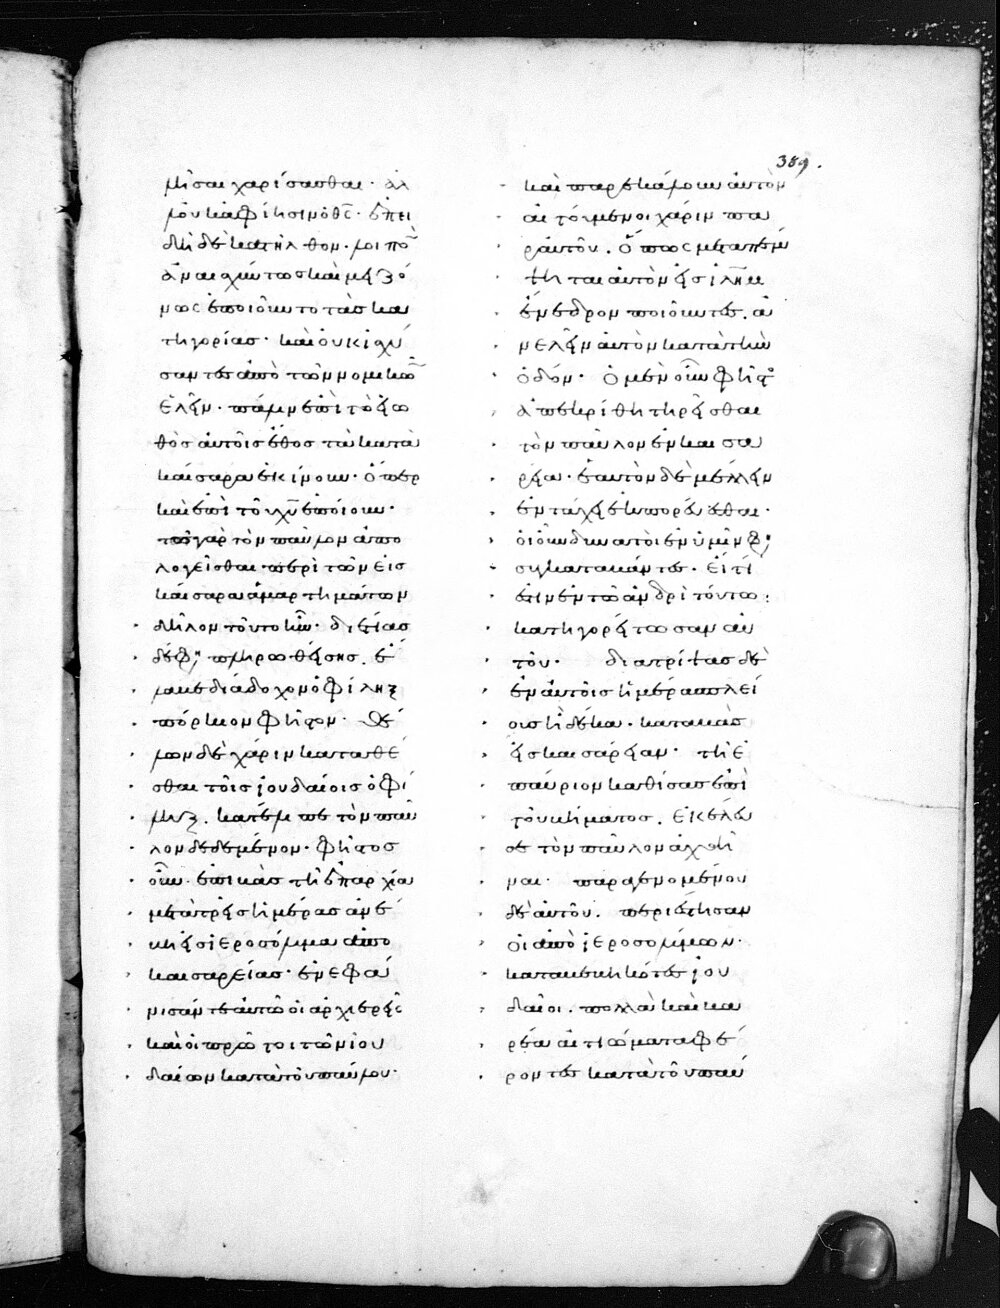 389.
μῆσαι χαρίσασθαι· ἀλ
δὴ δὲ κατῆλθον· μοι πο
μος ἐποιοῦντο τὰς κα
τηγορίας· καὶ οὐκ ἰσχύ
σαντες ἀπὸ τῶν νομικῶ
ἑλεῖν· πάλιν ἐπὶ τὸ εἰω
θὸς αὐτοῖς ἔθος τὰ κατὰ
καίσαρα ἐκίνουν· ὅπερ
καὶ ἐπὶ τοῦ χυ ἐποίουν·
πρὸς γὰρ τὸν παῦλον ἀπο
λογεῖσθαι περὶ τῶν εἰς
καίσαρα ἁμαρτημάτων
δῆλον τοῦτο ἦν· διετίας
δέ φη πληρωθείσης· ἔ
λαβε διάδοχον ὁ φίληξ
πόρκιον φῆστον· θέ
λων δὲ χάριν καταθέ
σθαι τοῖς ἰουδαίοις ὁ φῆ
ληξ. κατέλιπε τὸν παῦ
λον δεδεμένον· φῆστος
οὖν ἐπιβὰς τῇ ἐπαρχία
μετὰ τρεῖς ἡμέρας ἀνέ
βη εἰς ἱεροσόλυμα ἀπο
καισαρείας· ἐνεφά
νισάν τε αὐτῶ οἱ ἀρχιερεῖς
καὶ οἱ πρῶτοι τῶν ἰου
δαίων κατὰ τοῦ παύλου·
καὶ παρεκάλουν αὐτὸν
αἰτούμενοι χάριν πα
ρ' αὐτοῦ. ὅπως μεταπέμ
ψηται αὐτὸν εἰς ἱλημ
ἔνεδρον ποιοῦντες. ἀ
νελεῖν αὐτὸν κατὰ τὴν
ὁδόν· ὁ μὲν οὖν φῆστος
ἀπεκρίθη τηρεῖσθαι
τὸν παῦλον ἐν καισα
ρεία· ἑαυτὸν δὲ μέλλειν
ἐν τάχει ἐκπορεύεσθαι·
οἱ οὖν δυνατοὶ ἐν ὑμῖν φη
συγκαταβάντες· εἴ τί
ἐστιν ἐν τῶ ἀνδρὶ τούτω:
κατηγορείτωσαν αὐ
τοῦ· διατρίψας δὲ
ἐν αὐτοῖς ἡμέρας πλεί
ους ἢ δέκα· καταβὰς
εἰς καισάρειαν· τῇ ἐ
παύριον καθίσας ἐπὶ
τοῦ βήματος. ἐκέλευ
σε τὸν παῦλον ἀχθῆ
ναι· παραγενομένου
δὲ αὐτοῦ. περιέστησαν
οἱ ἀπὸ ἱεροσολύμων·
καταβεβηκότες ἰου
δαῖοι. πολλὰ καὶ βα
ρέα αἰτιώματα φέ
ροντες κατὰ τοῦ παύ